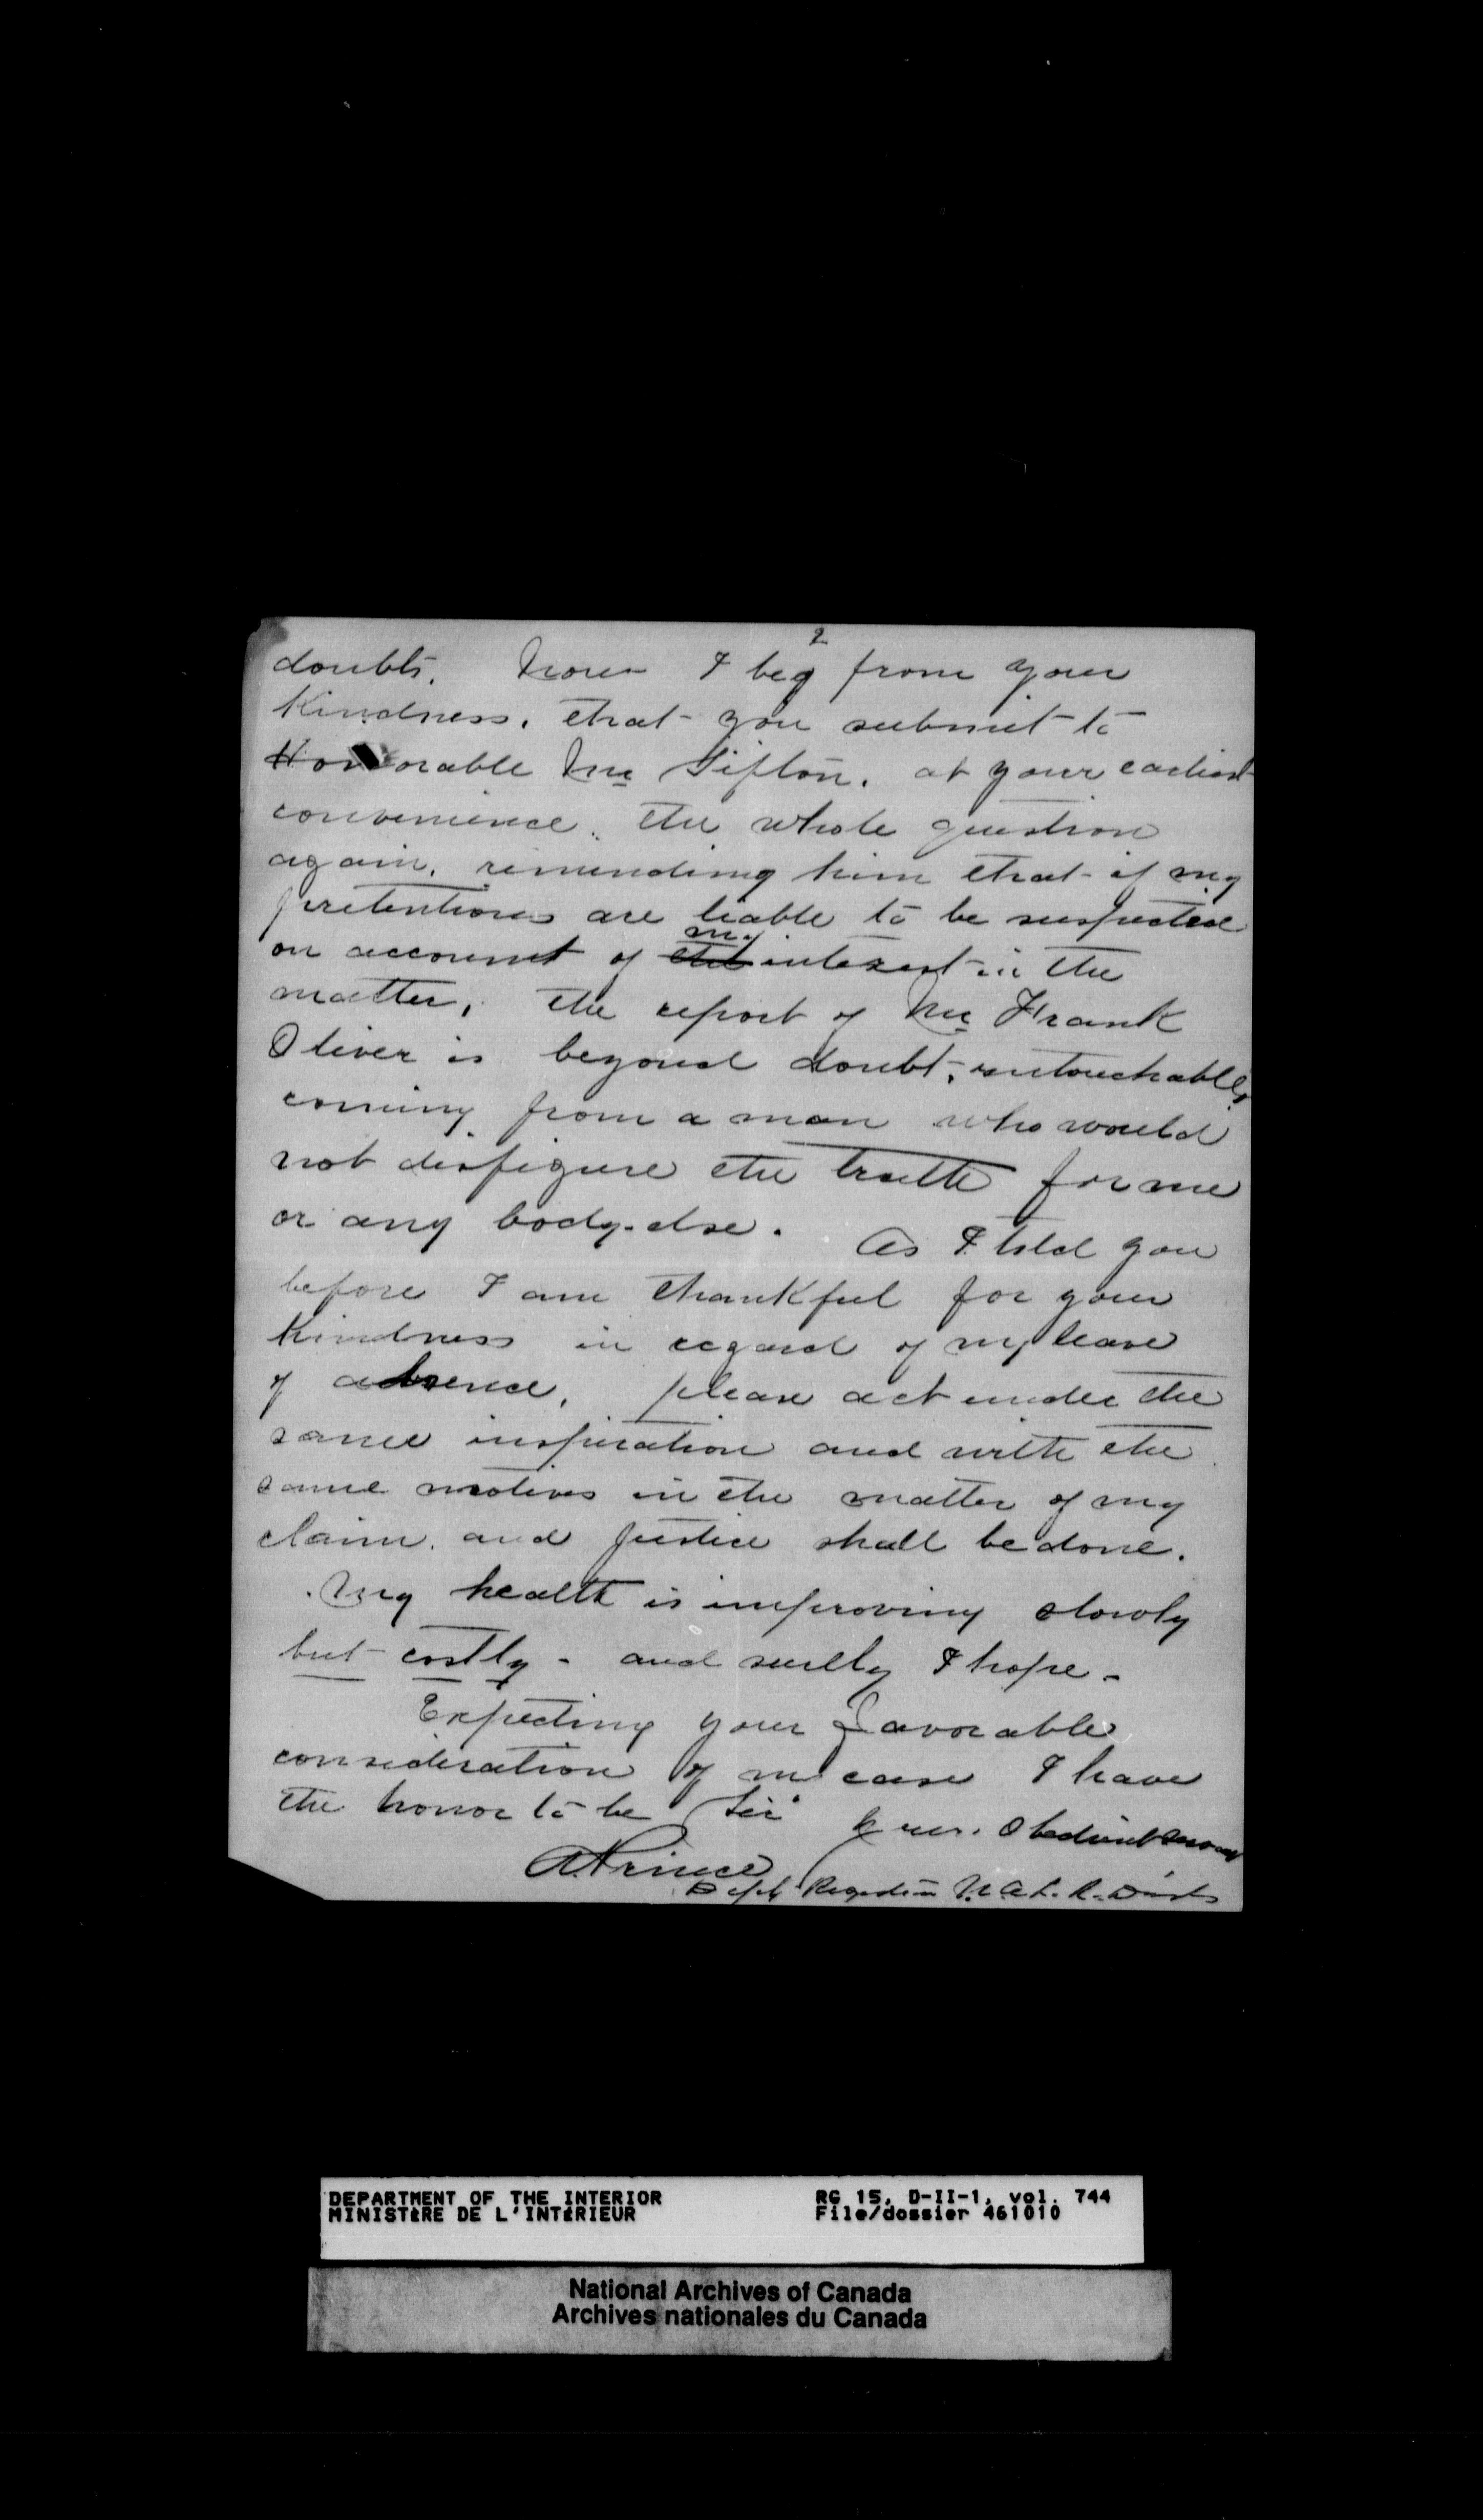 2
doubts. Now I beg from your
Kindness, that you submit to
Honorable Mr Sifton, at your earliest
convenience, the whole question
again, reminding him that if my
pretentions are liable to be suspected
my
on account of the interest in the
matter, the report of Mr Frank
Oliver is beyond doubt, untouchable,
coming from a man who would
not disfigure the truth for me
or any body else. As I told you
before I am thankful for your
Kindness in regard of my leave
of absence, please act under the
same inspiration and with the
same motives in the matter of my
claim, and justice shall be done.
My health is improving slowly
but costly - and surely I hope -
Expecting your favorable
consideration of my case I have
the honor to be Sir your Obedient servant
A Prince
Depty Registrar N. A. L. R. Dist
DEPARTMENT OF THE INTERIOR RG 15, D-II-1, vol. 744
MINISTÈRE DE L'INTÉRIEUR File/dossier 461010
National Archives of Canada
Archives nationales du Canada